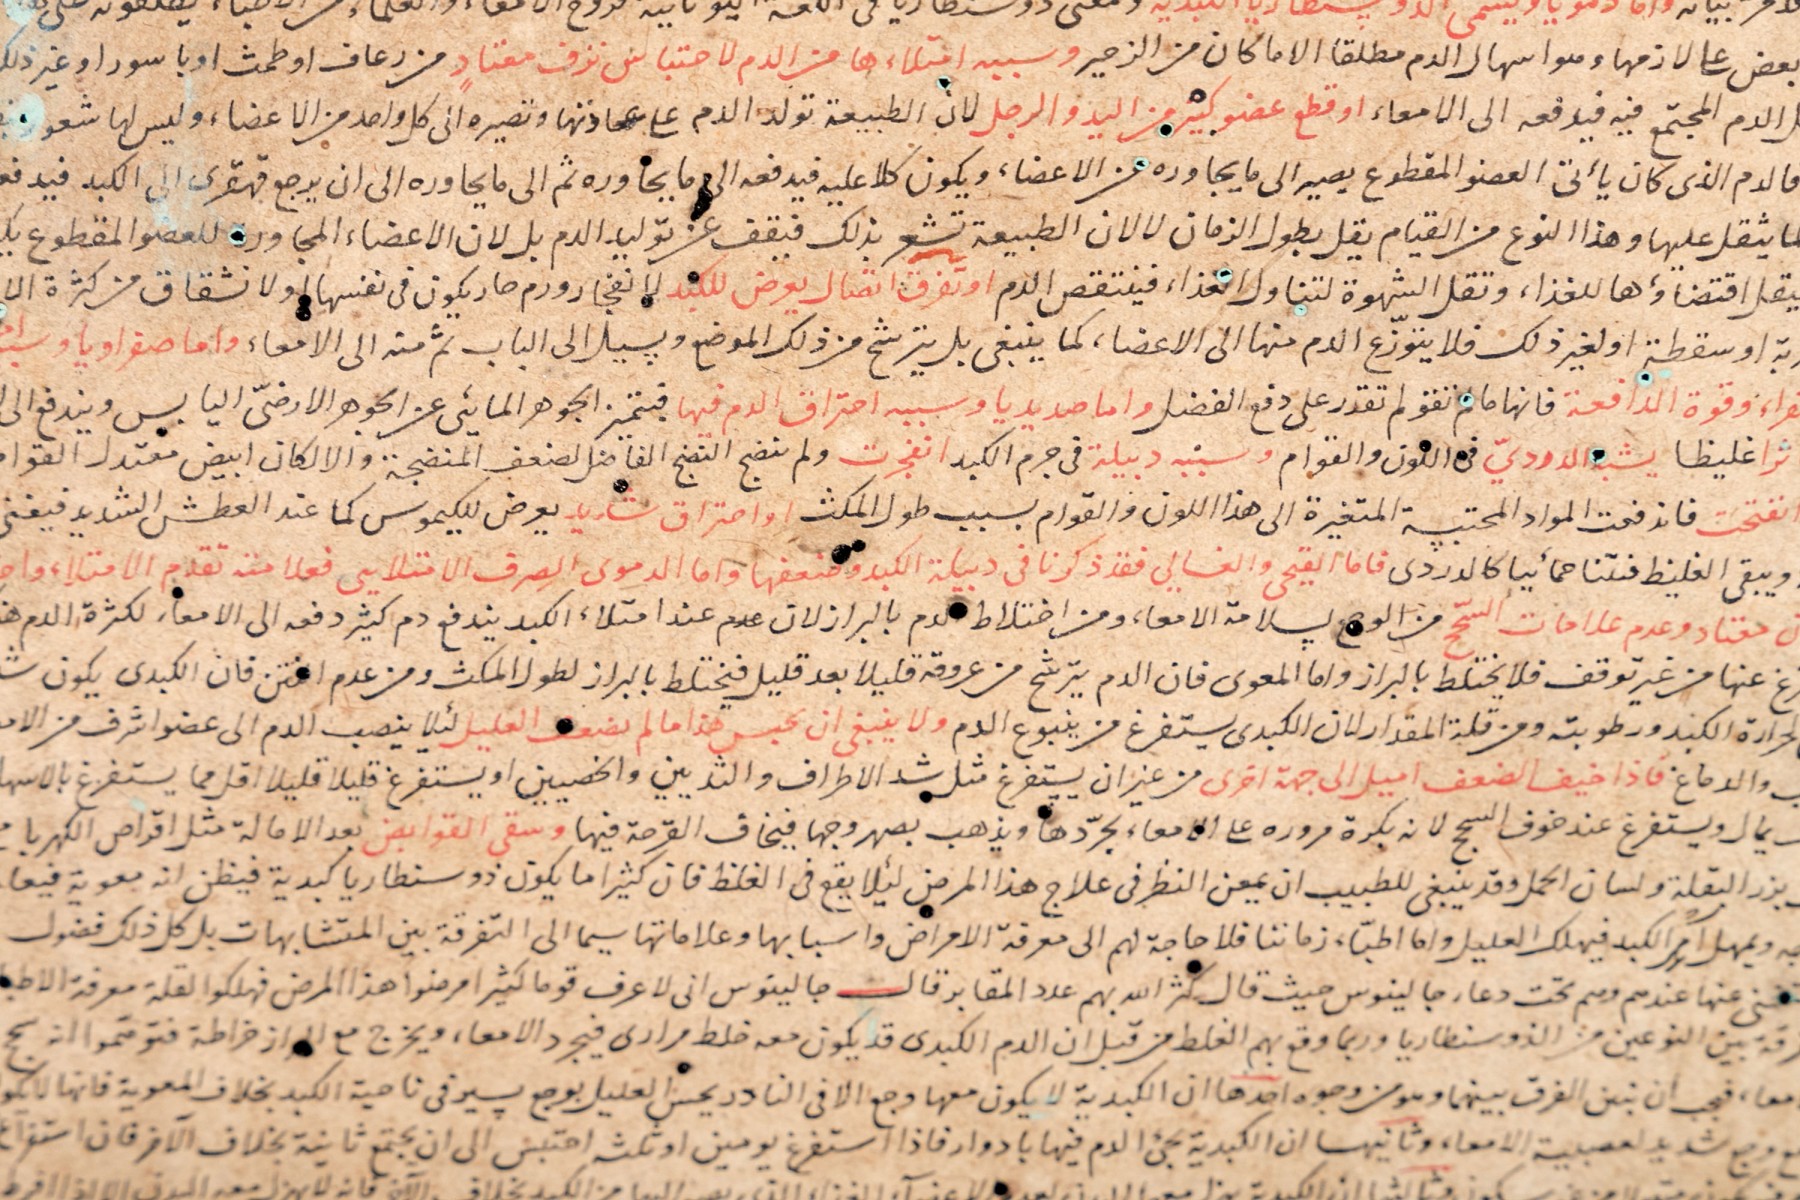 بيانه واما دمويا ويسمى الذوسنطاريا الكبدية ومعنى ذوسنطاريا فى اللغة اليونانية قروح الامعاء
بعض على لازمها وهو اسهال الدم مطلقا الا ما كان من الزحير وسببه امتلاءها من الدم لاحتباس نزف معتاد من رعاف او طمث او باسور او غير ذلك
الدم المجتمع فيه فيدفعه الى الامعاء او قطع عضو كبير من اليد والرجل لان الطبيعة تولد الدم على عادتها وتصيره الى كل واحد من الاعضاء وليس لها شعور
فالدم الذى كان يأتى العضو المقطوع يصير الى ما يجاوره من الاعضاء ويكون كلا عليه فيدفعه الى ما يجاوره ثم الى ما يجاوره الى ان يرجع قهقرى الى الكبد فيدفعه
لما يثقل عليها وهذا النوع من القيام يقل بطول الزمان لا لان الطبيعة تشعر بذلك فيقف عن توليد الدم بل لان الاعضاء المجاورة للعضو المقطوع
يقل اقتضاؤها للغذاء وتقل الشهوة لتناول الغذاء فينتقص الدم او تفرق اتصال يعرض للكبد لانفجار ورم حار يكون فى نفسها او لانشقاق من كثرة
او سقطة او لغير ذلك فلا يتوزّع الدم منها الى الاعضاء كما ينبغى بل يترشح من ذلك الموضع ويسيل الى الباب ثم منه الى الامعاء واما صفراويا
وقوة الدافعة فانها ما لم تقو لم تقدر على دفع الفضل واما صديديا وسببه احتراق الدم فيها فيتميز الجوهر المائى عن الجوهر الارضىّ اليابس ويندفع
غليظا يشبه الدردىّ فى اللون والقوام وسببه دبيلة فى جرم الكبد انفجرت ولم تنضج النضج الفاضل لضعف المنضجة والا لكان ابيض معتدل القوام
انفتحت فاندفعت المواد المحتبسة المتغيرة الى هذا اللون والقوام بسبب طول المكث او احتراق شديد يعرض للكيموس كما عند العطش الشديد
ويبقى الغليظ منتنا حمائيا كالدردى فاما القيحى والغسالي فقد ذكرنا فى دبيلة الكبد وضعفها واما الدموى الصرف الامتلايى فعلامته تقدم الامتلاء
معتاد وعدم علامات السحج من الوجع لسلامة الامعاء ومن اختلاط الدم بالبراز لان عدم عند امتلاء الكبد يندفع دم كثير دفعه الى الامعاء لكثرة الدم
عنها من غير توقف فلا يختلط بالبراز واما المعوى فان الدم يترشح من عروقه قليلا بعد قليل فيختلط بالبراز لطول المكث ومن عدم النتن فان الكبدى يكون
لحرارة الكبد ورطوبته ومن قلة المقدار لان الكبدى يستفرغ من ينبوع الدم ولا ينبغى ان يحبس هذا ما لم يضعف العليل لئلا ينصب الدم الى عضو اشرف من
والدماغ فاذا خيف الضعف اميل الى جهة اخرى من غير ان يستفرغ مثل شد الاطراف والثديين والخصيين او يستفرغ قليلا قليلا اقل مما يستفرغ بالاسهال
يمال ويستفرغ عند خوف السحج لانه بكثرة مروره على الامعاء يجرّدها ويذهب بصهروجها فيخاف القرحة فيها وسقى القوابض بعد الامالة مثل اقراص الكهربا
بزر البقلة ولسان الحمل وقد ينبغى للطبيب ان يمعن النظر فى علاج هذا المرض لئلا يقع فى الغلط فان كثيرا ما يكون ذوسنطاريا كبدية فيظن انه معوية
ويهمل امر الكبد فيهلك العليل واما اطبّاء زماننا فلا حاجة لهم الى معرفة الامراض واسبابها وعلاماتها سيما الى التفرقة بين المتشابهات بل كل ذلك فضول
عنها عندهم وهم تحت دعاء جالينوس حيث قال كثر الله بهم عدد المقابر قال جالينوس انى لا عرف قوما كثيرا مرضوا هذا المرض فهلكوا لقلة معرفة
بين النوعين من الذوسنطاريا وربما وقع بهم الغلط من قبل ان الدم الكبدى قد يكون معه خلط مرارى فيجرد الامعاء ويخرج مع البراز خراطة فتوهموا انه سحج
فيجب ان نبين الفرق بينهما وهو من وجوه احدها ان الكبدية لا يكون معها وجع الا فى النادر يحس العليل بوجع يسير فى ناحية الكبد بخلاف المعوية فانها
وجع شديد لعصبية الامعاء وثانيها ان الكبدية يجئ الدم فيها بادوار فاذا استفرغ يومين او ثلثه احتبس الى ان يجتمع ثانية بخلاف الآخر فان استفراغ